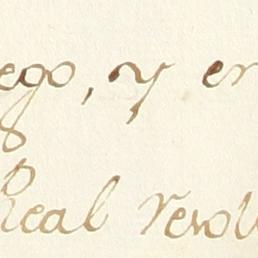 ego, y en
Real resol